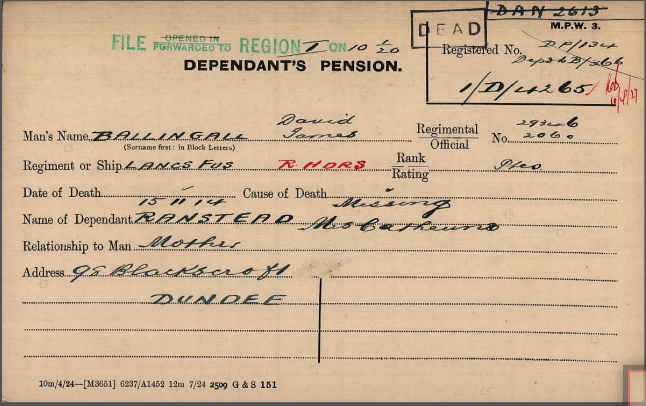 DAN 2613
DEAD
M.P.W. 3.
OPENED IN
FILE FORWARDED TO REGION I ON 10 1/20
Registered No. DP/134
DEPENDANT'S PENSION.
1/D/4265/
David
Man's Name BALLINGALL James Regimental Official No. 29346 2060
(Surname first: in Block Letters)
Regiment or Ship LANCS FUS R. HDRS Rank Rating Pte
Date of Death 15 11 14 Cause of Death Missing
Name of Dependant RANSTEAD Mrs Catherine
Relationship to Man Mother
Address 98 Blackscroft
DUNDEE
10m/4/24—[M3651] 6237/A1452 12m 7/24 2509 G & S 151